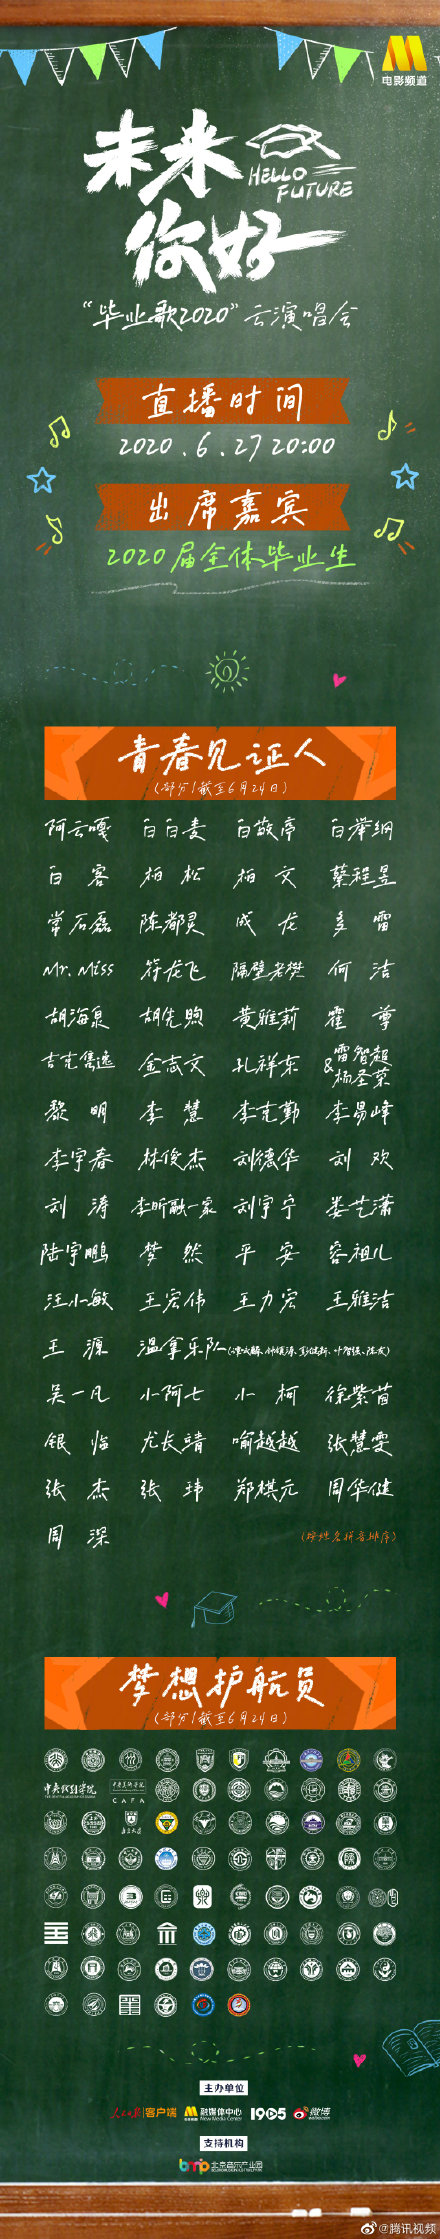 电影频道
未来
HELLO
FUTURE
你好
“毕业歌2020”云演唱会
直播时间
2020.6.27 20:00
出席嘉宾
2020届全体毕业生
青春见证人
(部分/截至6月24日)
阿云嘎 白白麦 白敬亭 白举纲
白客 柏松 柏文 蔡程昱
常石磊 陈都灵 成龙 多雷
Mr. Miss 符龙飞 隔壁老樊 何洁
胡海泉 胡先煦 黄雅莉 霍尊
吉克隽逸 金志文 孔祥东 雷智超&杨圣荣
黎明 李慧 李克勤 李易峰
李宇春 林俊杰 刘德华 刘欢
刘涛 李昕融一家 刘宇宁 娄艺潇
陆宇鹏 梦然 平安 容祖儿
汪小敏 王宏伟 王力宏 王雅洁
王源 温拿乐队(谭咏麟、钟镇涛、彭健新、叶智强、陈友)
吴一凡 小阿七 小柯 徐紫茵
银临 尤长靖 喻越越 张慧雯
张杰 张玮 郑棋元 周华健
周深 (按姓名拼音排序)
梦想护航员
(部分/截至6月24日)
中央戏剧学院
CAFA
主办单位
人民日报 客户端 融媒体中心 New Media Center 1905 微博
支持机构
bmip 北京音乐产业园
@腾讯视频